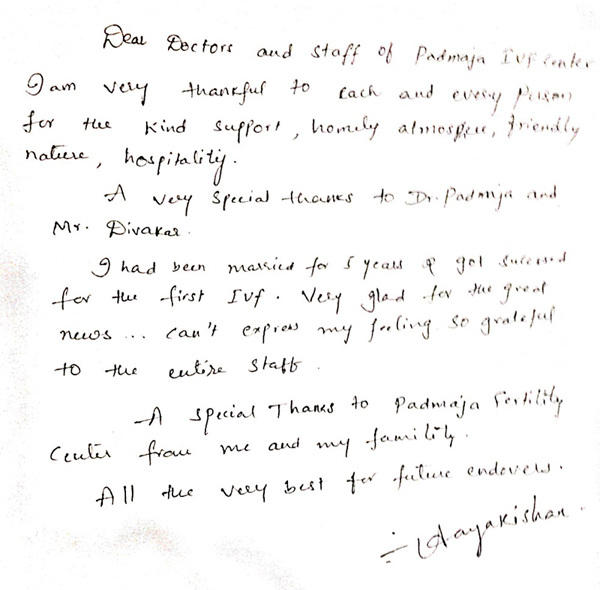 Dear Doctors and staff of Padmaja IVF center
I am very thankful to each and every person
for the kind support, homely atmospere, friendly
nature, hospitality.
A very special thanks to Dr. Padmja and
Mr. Divakar.
I had been married for 5 years & got sucessed
for the first IVF. Very glad for the great
news... can't express my feeling so grateful
to the entire staff.
A special Thanks to Padmaja Fertility
Center from me and my famility.
All the very best for future endevers.